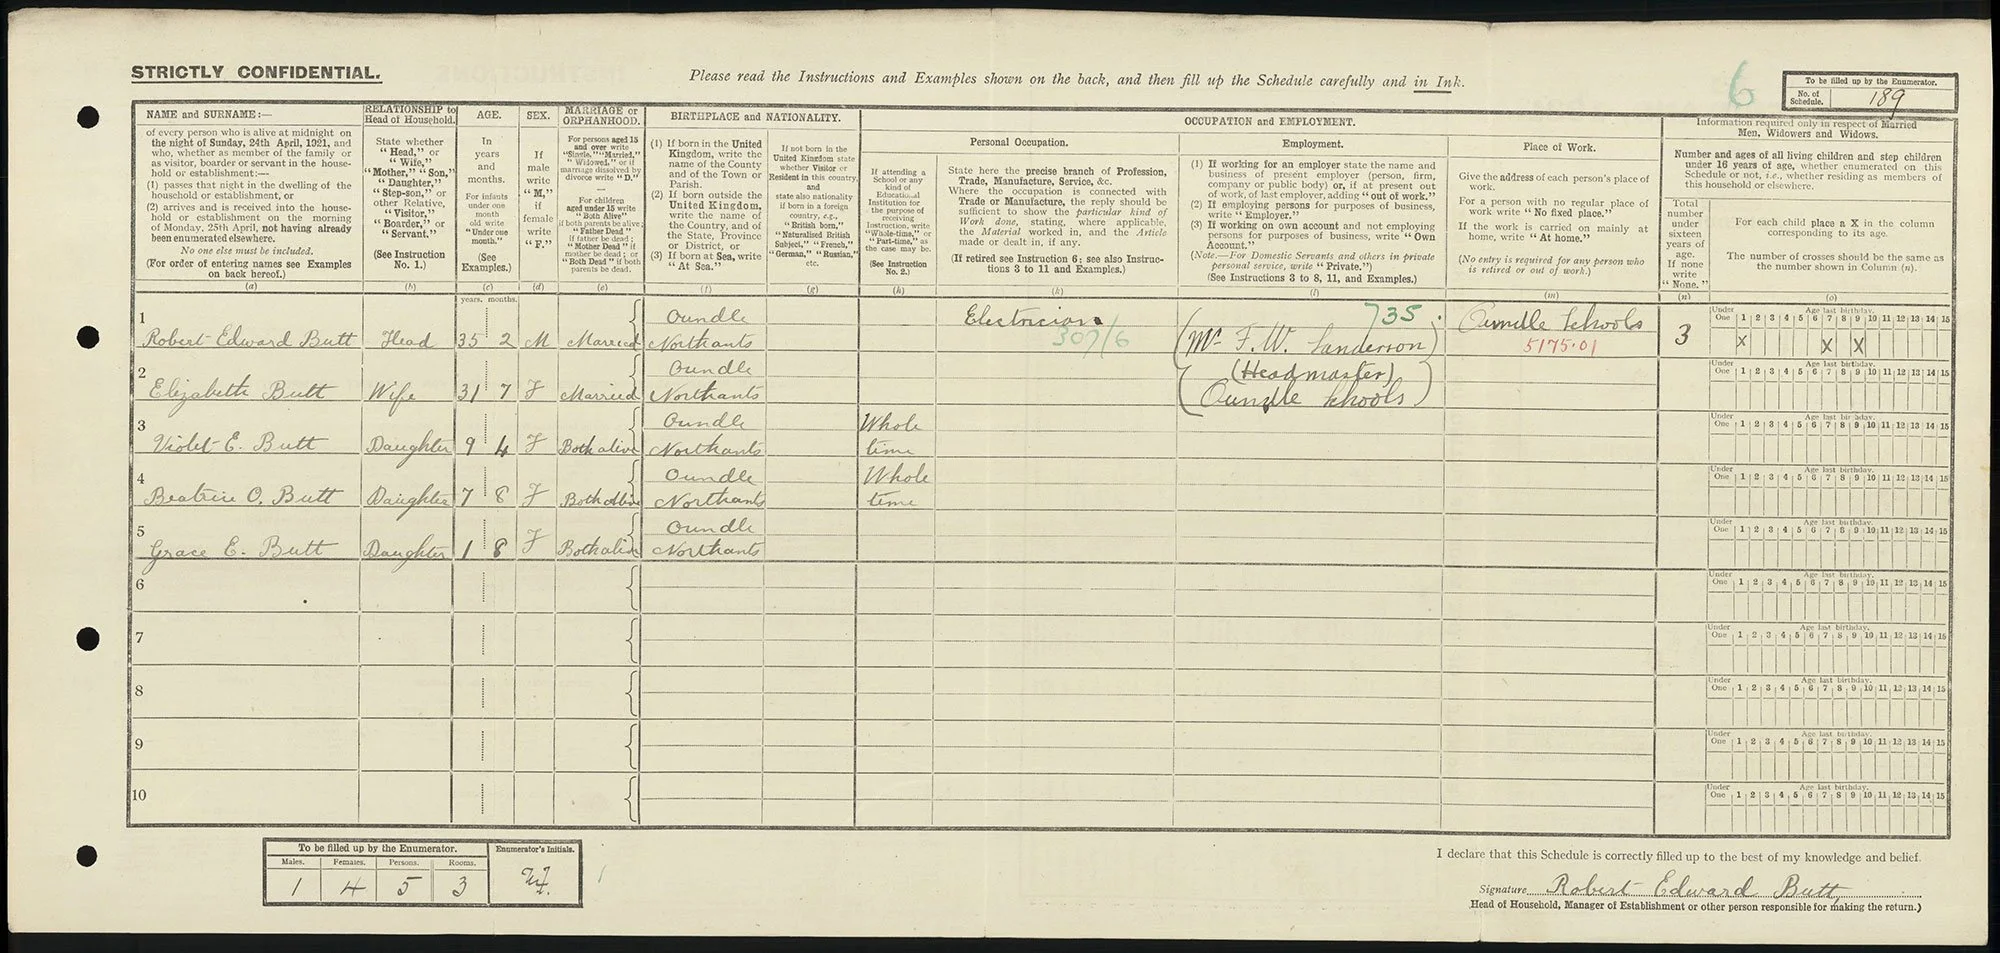 STRICTLY CONFIDENTIAL.
Please read the Instructions and Examples shown on the back, and then fill up the Schedule carefully and in Ink.
6
To be filled up by the Enumerator.
No. of Schedule.
189
NAME and SURNAME:—
of every person who is alive at midnight on
the night of Sunday, 24th April, 1921, and
who, whether as member of the family or
as visitor, boarder or servant in the house-
hold or establishment:—
(1) passes that night in the dwelling of the
household or establishment, or
(2) arrives and is received into the house-
hold or establishment on the morning
of Monday, 25th April, not having already
been enumerated elsewhere.
No one else must be included.
(For order of entering names see Examples
on back hereof.)
(a)
RELATIONSHIP to
Head of Household.
State whether
"Head," or
"Wife,"
"Mother," "Son,"
"Daughter,"
"Step-son," or
other Relative,
"Visitor,"
"Boarder," or
"Servant."
(See Instruction
No. 1.)
(b)
AGE.
In
years
and
months.
For infants
under one
month
old write
"Under one
month."
(See
Examples.)
(c)
SEX.
If
male
write
"M,"
if
female
write
"F."
(d)
MARRIAGE or
ORPHANHOOD.
For persons aged 15
and over write
"Single," "Married,"
"Widowed," or if
marriage dissolved by
divorce write "D."
For children
aged under 15 write
"Both Alive"
if both parents be alive;
"Father Dead"
if father be dead;
"Mother Dead" if
mother be dead; or
"Both Dead" if both
parents be dead.
(e)
BIRTHPLACE and NATIONALITY.
(1) If born in the United
Kingdom, write the
name of the County
and of the Town or
Parish.
(2) If born outside the
United Kingdom,
write the name of
the Country, and of
the State, Province
or District, or
(3) If born at Sea, write
"At Sea."
(f)
If not born in the
United Kingdom state
whether Visitor or
Resident in this country,
and
state also nationality
if born in a foreign
country, e.g.,
"British born,"
"Naturalised British
Subject," "French,"
"German," "Russian,"
etc.
(g)
OCCUPATION and EMPLOYMENT.
If attending a
School or any
kind of
Educational
Institution for
the purpose of
receiving
Instruction, write
"Whole-time," or
"Part-time," as
the case may be.
(See Instruction
No. 2.)
(h)
Personal Occupation.
State here the precise branch of Profession,
Trade, Manufacture, Service, &c.
Where the occupation is connected with
Trade or Manufacture, the reply should be
sufficient to show the particular kind of
Work done, stating, where applicable,
the Material worked in, and the Article
made or dealt in, if any.
(If retired see Instruction 6; see also Instruc-
tions 3 to 11 and Examples.)
(k)
Employment.
(1) If working for an employer state the name and
business of present employer (person, firm,
company or public body) or, if at present out
of work, of last employer, adding "out of work."
(2) If employing persons for purposes of business,
write "Employer."
(3) If working on own account and not employing
persons for purposes of business, write "Own
Account."
(Note.—For Domestic Servants and others in private
personal service, write "Private.")
(See Instructions 3, 8, 11, and Examples.)
(l)
Place of Work.
Give the address of each person's place of
work.
For a person with no regular place of
work write "No fixed place."
If the work is carried on mainly at
home, write "At home."
(No entry is required for any person who
is retired or out of work.)
(m)
Information required only in respect of Married
Men, Widowers and Widows.
Number and ages of all living children and step children
under 16 years of age, whether enumerated on this
Schedule or not, i.e., whether residing as members of
this household or elsewhere.
Total
number
under
sixteen
years of
age.
If none
write
"None."
(n)
For each child place a X in the column
corresponding to its age.
The number of crosses should be the same as
the number shown in Column (n).
(o)
years. months.
1
Robert Edward Butt Head 35 2 M Married Oundle Northants Electrician 307/6 Mr F. W. Sanderson 735 Oundle Schools 5175.01 3
Under One Age last birthday. 1 2 3 4 5 6 7 8 9 10 11 12 13 14 15
X X X
2
Elizabeth Butt Wife 31 7 F Married Oundle Northants (Headmaster) Oundle Schools
Under One Age last birthday. 1 2 3 4 5 6 7 8 9 10 11 12 13 14 15
3
Violet E. Butt Daughter 9 4 F Both alive Oundle Northants Whole time
Under One Age last birthday. 1 2 3 4 5 6 7 8 9 10 11 12 13 14 15
4
Beatrice O. Butt Daughter 7 8 F Both Alive Oundle Northants Whole time
Under One Age last birthday. 1 2 3 4 5 6 7 8 9 10 11 12 13 14 15
5
Grace E. Butt Daughter 1 8 F Both alive Oundle Northants
Under One Age last birthday. 1 2 3 4 5 6 7 8 9 10 11 12 13 14 15
6
Under One Age last birthday. 1 2 3 4 5 6 7 8 9 10 11 12 13 14 15
7
Under One Age last birthday. 1 2 3 4 5 6 7 8 9 10 11 12 13 14 15
8
Under One Age last birthday. 1 2 3 4 5 6 7 8 9 10 11 12 13 14 15
9
Under One Age last birthday. 1 2 3 4 5 6 7 8 9 10 11 12 13 14 15
10
Under One Age last birthday. 1 2 3 4 5 6 7 8 9 10 11 12 13 14 15
To be filled up by the Enumerator.
Males. Females. Persons. Rooms.
1 4 5 3
Enumerator's Initials.
I declare that this Schedule is correctly filled up to the best of my knowledge and belief.
Signature Robert Edward Butt
Head of Household, Manager of Establishment or other person responsible for making the return.)